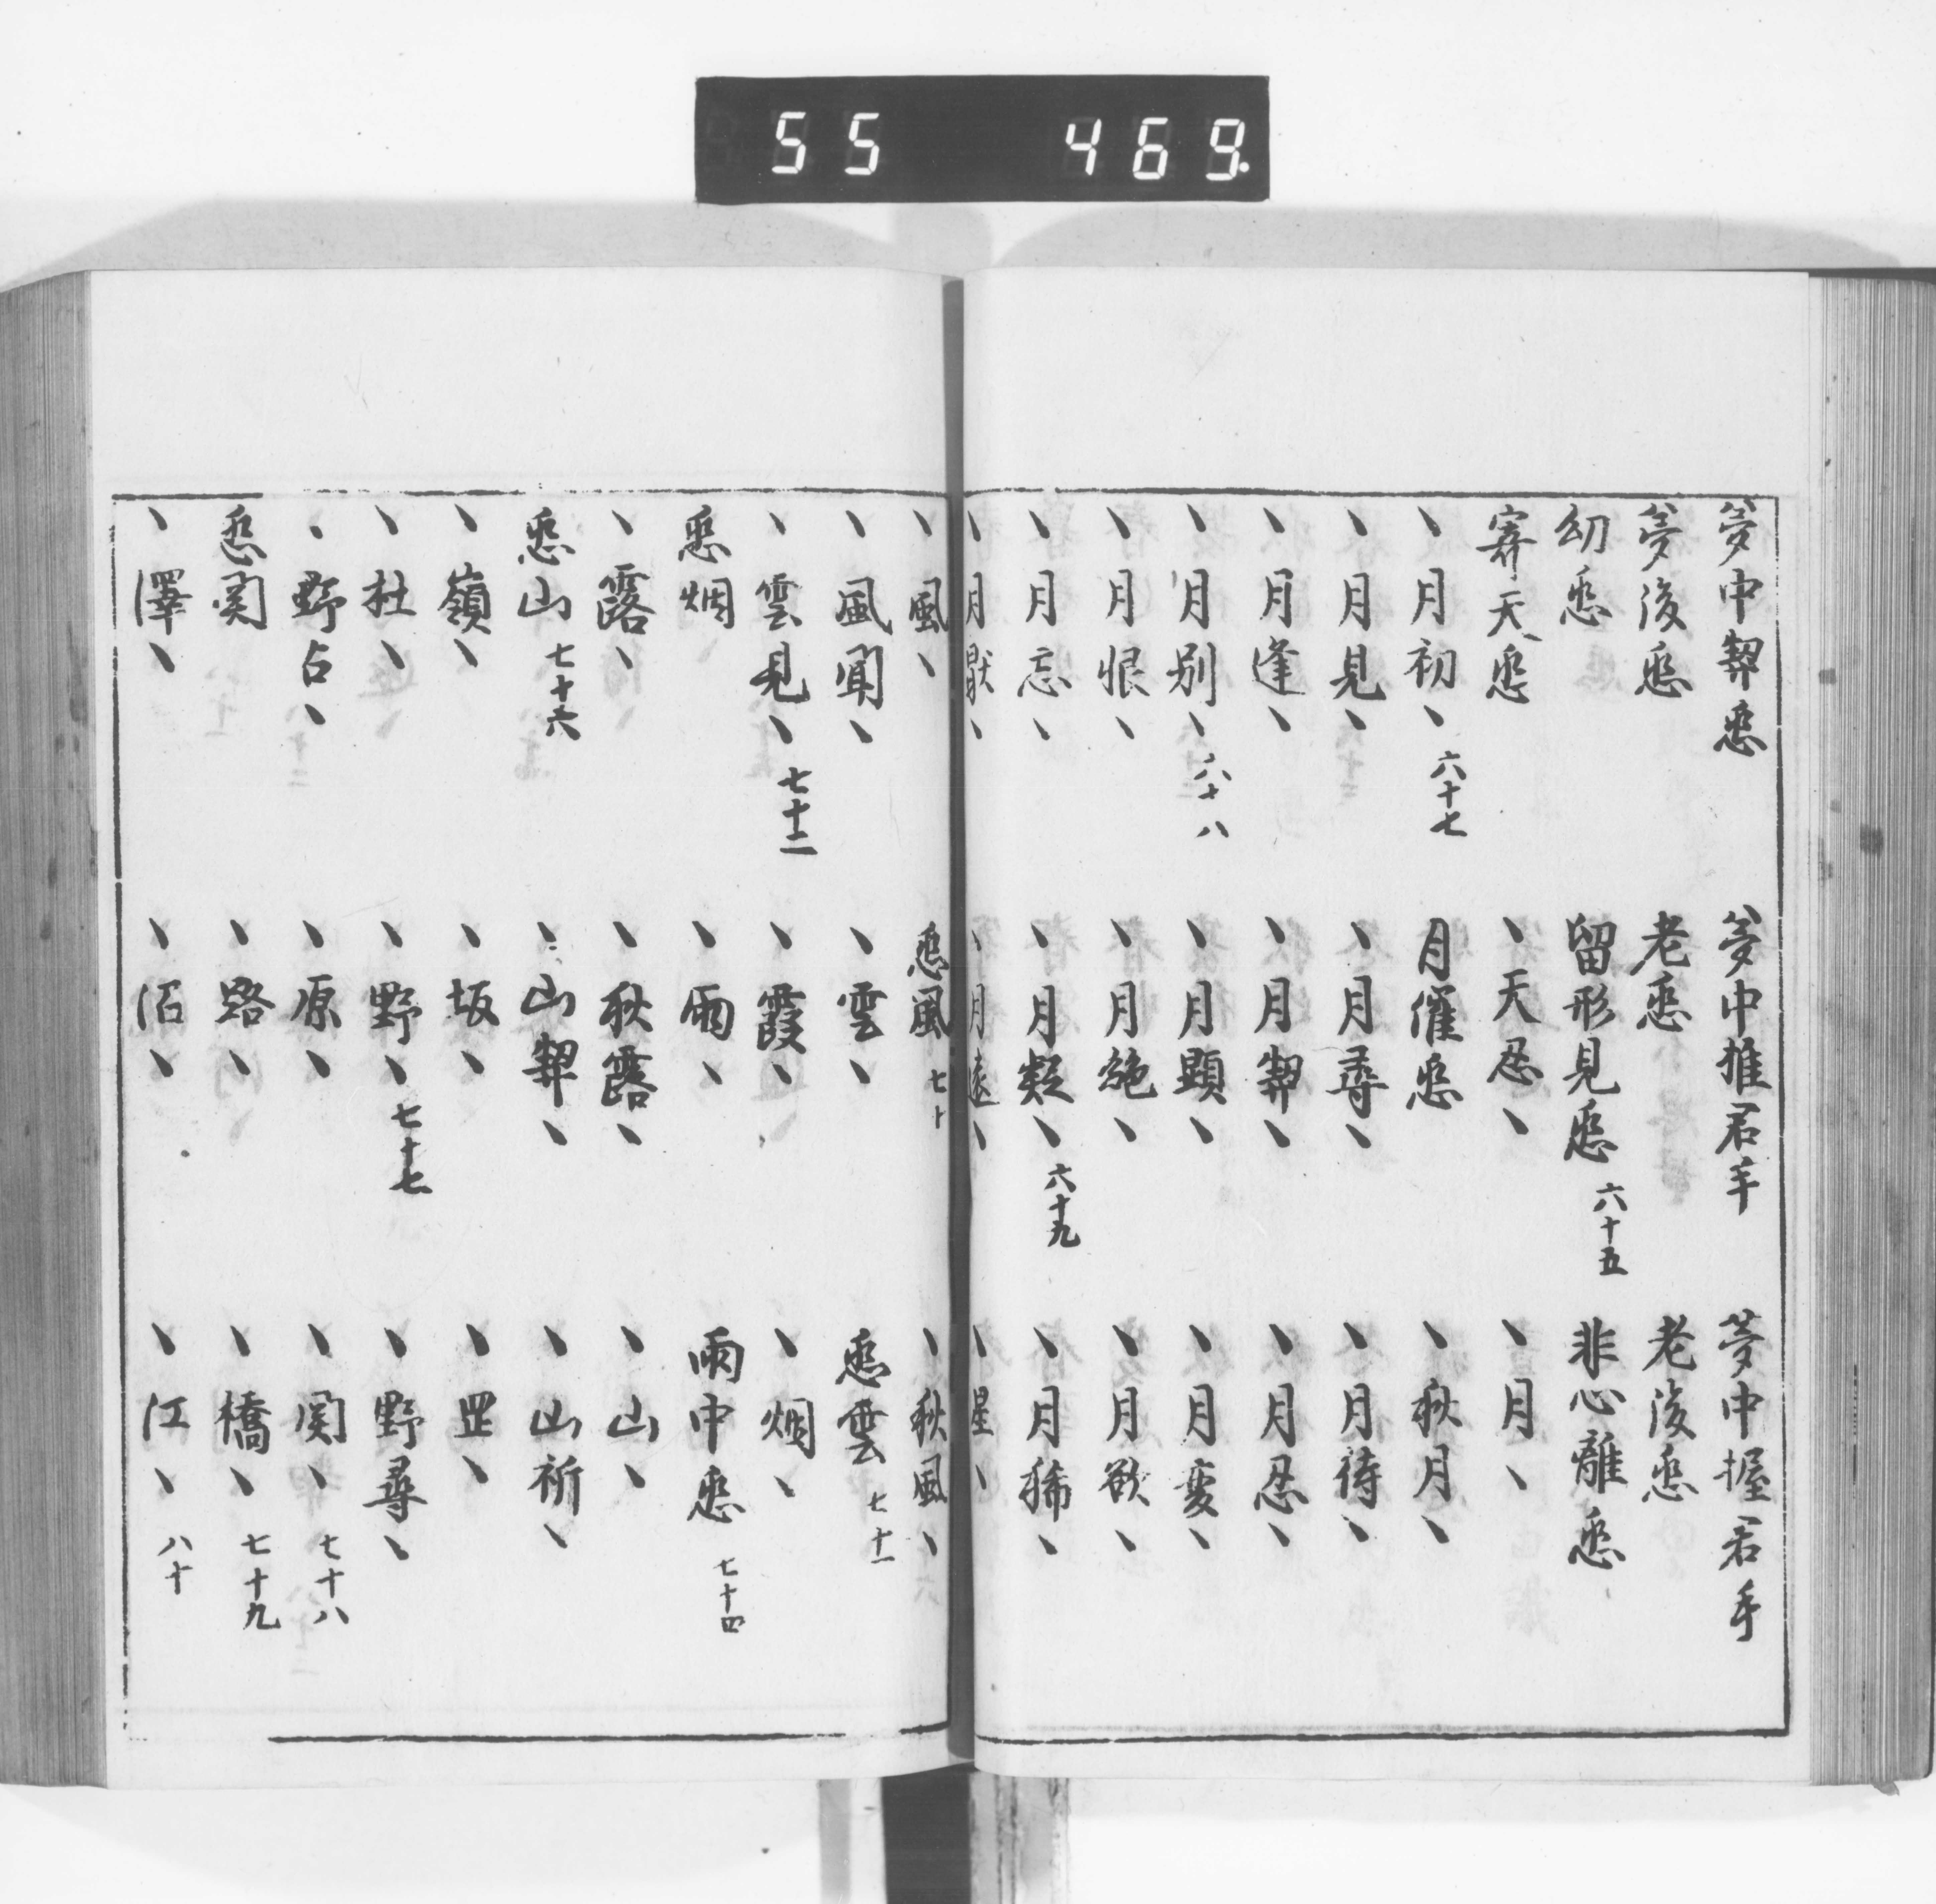 55 469.
夢中契恋 夢中推君手 夢中握君手
夢後恋 老恋 老後恋
幼恋 留形見恋 六十五 非心離恋
寄天恋 丶天忍丶 丶月丶
丶月初丶 六十七 月催恋 丶秋月丶
丶月見丶 丶月尋丶 丶月待丶
丶月逢丶 丶月契丶 丶月忍丶
丶月別丶 六十八 丶月顕丶 丶月変丶
丶月恨丶 丶月絶丶 丶月欲丶
丶月忘丶 丶月疑丶 六十九 丶月稀丶
丶月厭丶 丶月遠丶 丶星丶
丶風丶 恋風 七十 丶秋風丶
丶風聞丶 丶雲丶 恋雲 七十一
丶雲見丶 七十二 丶霞丶 丶烟丶
恋烟 丶雨丶 雨中恋 七十四
丶露丶 丶秋露丶 丶山丶
恋山 七十六 丶山契丶 丶山祈丶
丶嶺丶 丶坂丶 丶罡丶
丶杜丶 丶野丶 七十七 丶野尋丶
丶野占丶 丶原丶 丶関丶 七十八
恋関 丶路丶 丶橋丶 七十九
丶澤丶 丶沼丶 丶江丶 八十